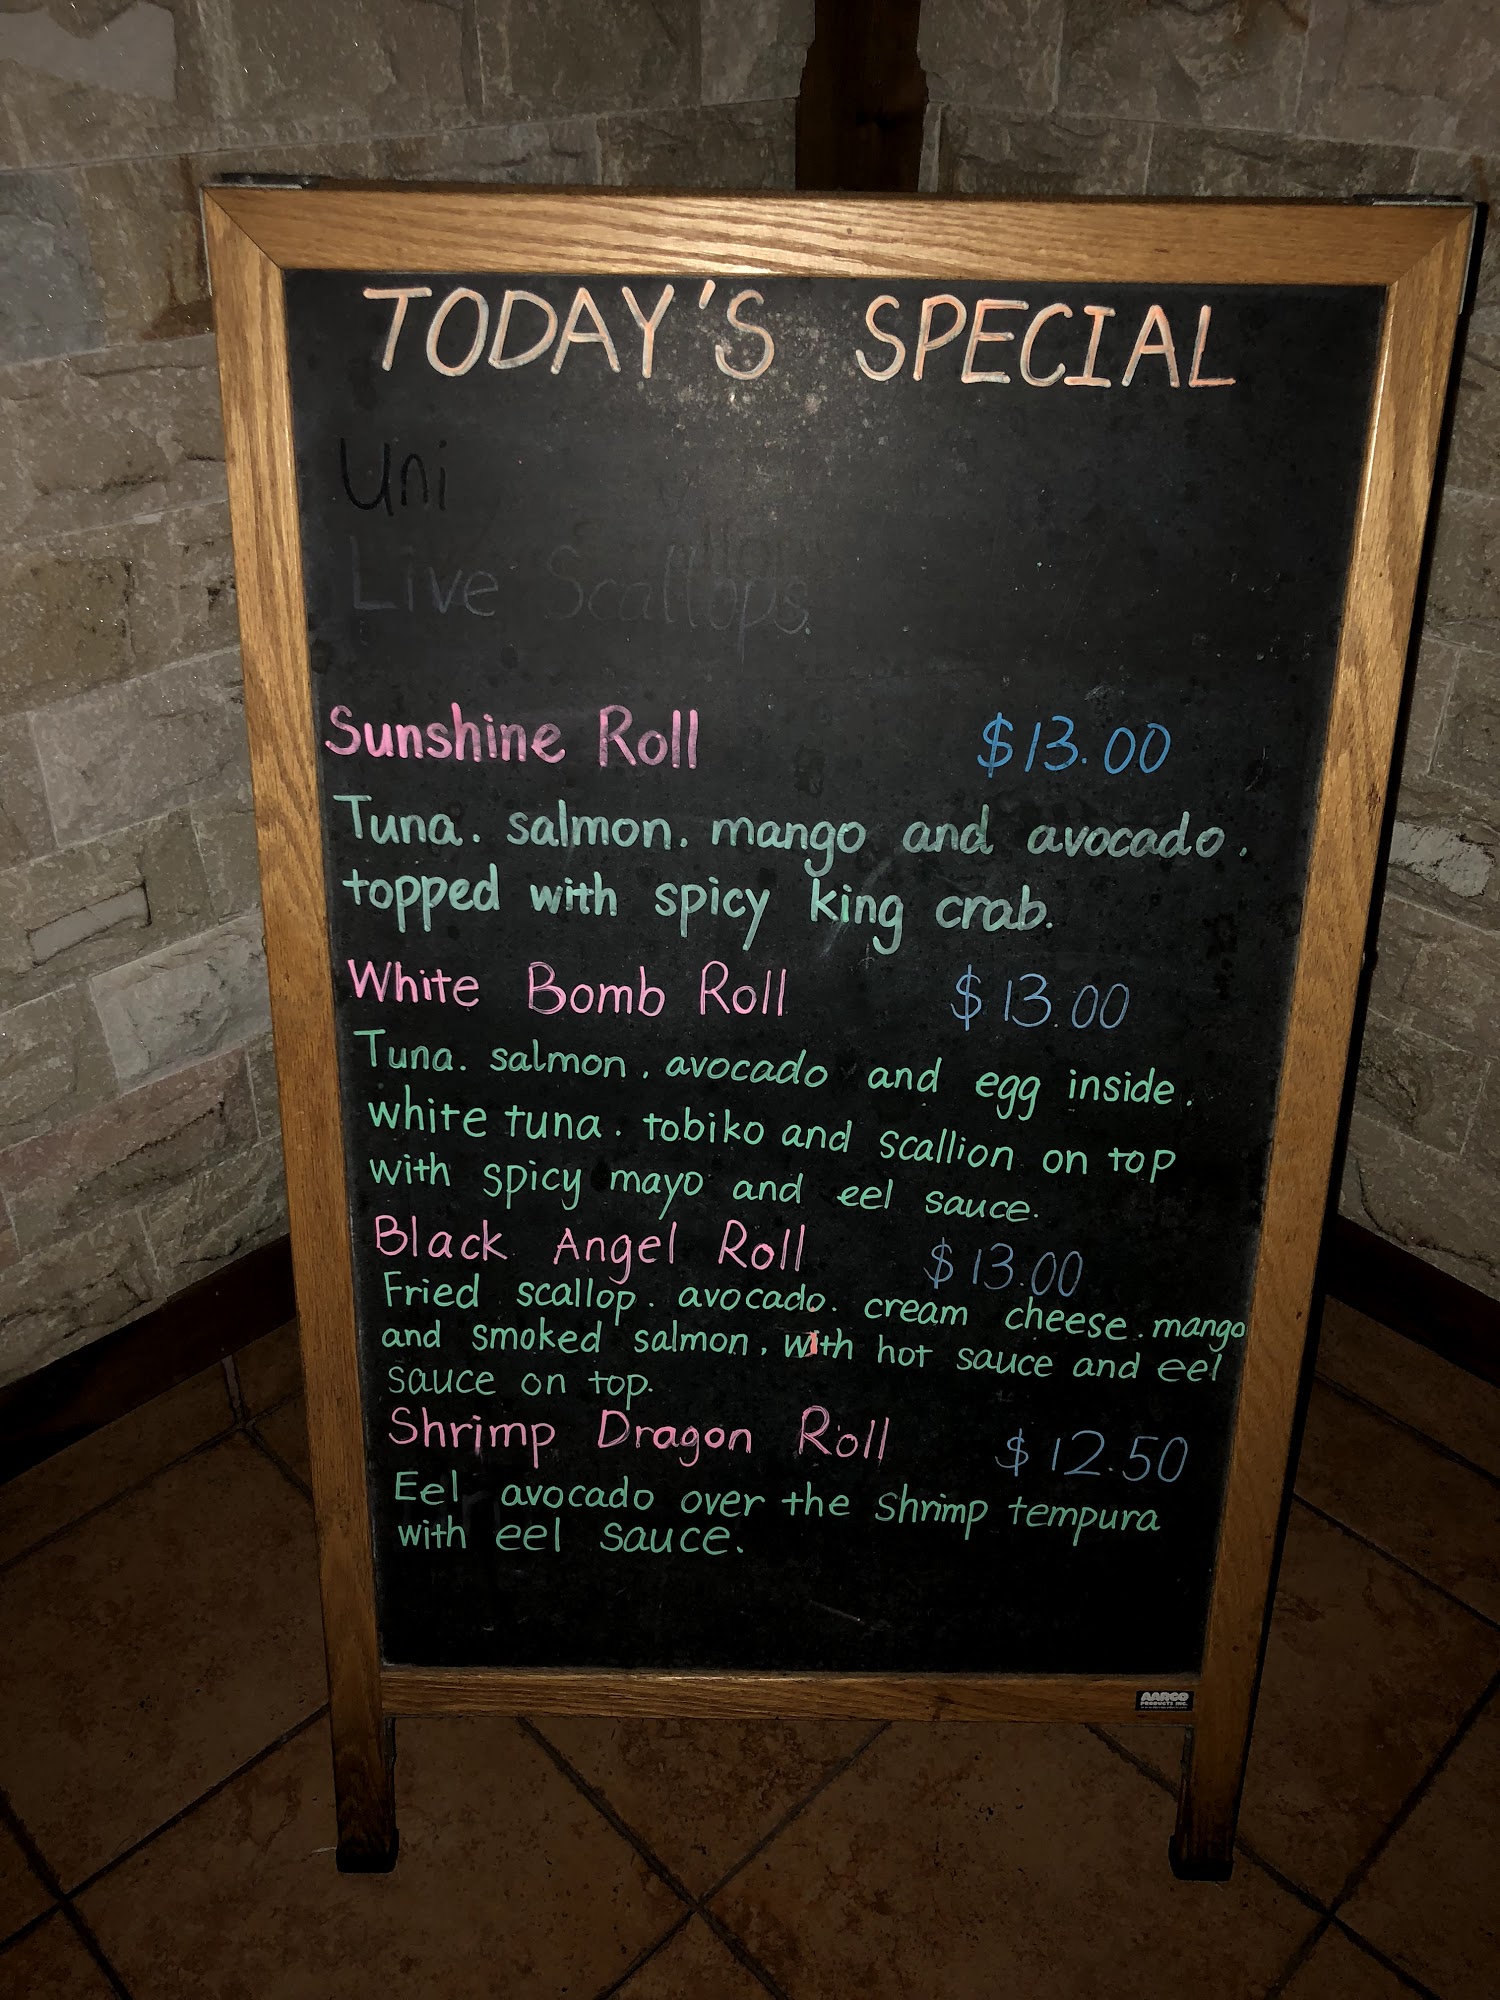 TODAY'S SPECIAL
Uni
Live Scallops
Sunshine Roll $13.00
Tuna. salmon. mango and avocado.
topped with spicy king crab.
White Bomb Roll $13.00
Tuna. salmon. avocado and egg inside.
white tuna. tobiko and scallion on top
with spicy mayo and eel sauce.
Black Angel Roll $13.00
Fried scallop. avocado. cream cheese. mango
and smoked salmon. with hot sauce and eel
sauce on top.
Shrimp Dragon Roll $12.50
Eel avocado over the shrimp tempura
with eel sauce.
AARCO
PRODUCTS INC.